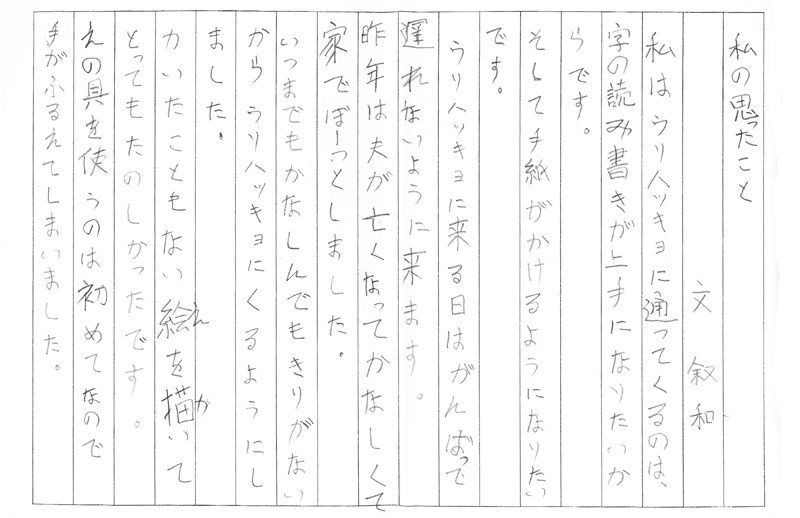 私の思ったこと
文 叙和
私はウリハッキョに通ってくるのは、
字の読み書きが上手になりたいか
らです。
そして手紙がかけるようになりたい
です。
ウリハッキョに来る日はがんばって
遅れないように来ます。
昨年は夫が亡くなってかなしくて
家でぼーっとしました。
いつまでもかなしんでもきりがない
からウリハッキョにくるようにし
ました。
かいたこともない絵を描いて
えん か
とってもたのしかったです。
えの具を使うのは初めてなので
手がふるえてしまいました。